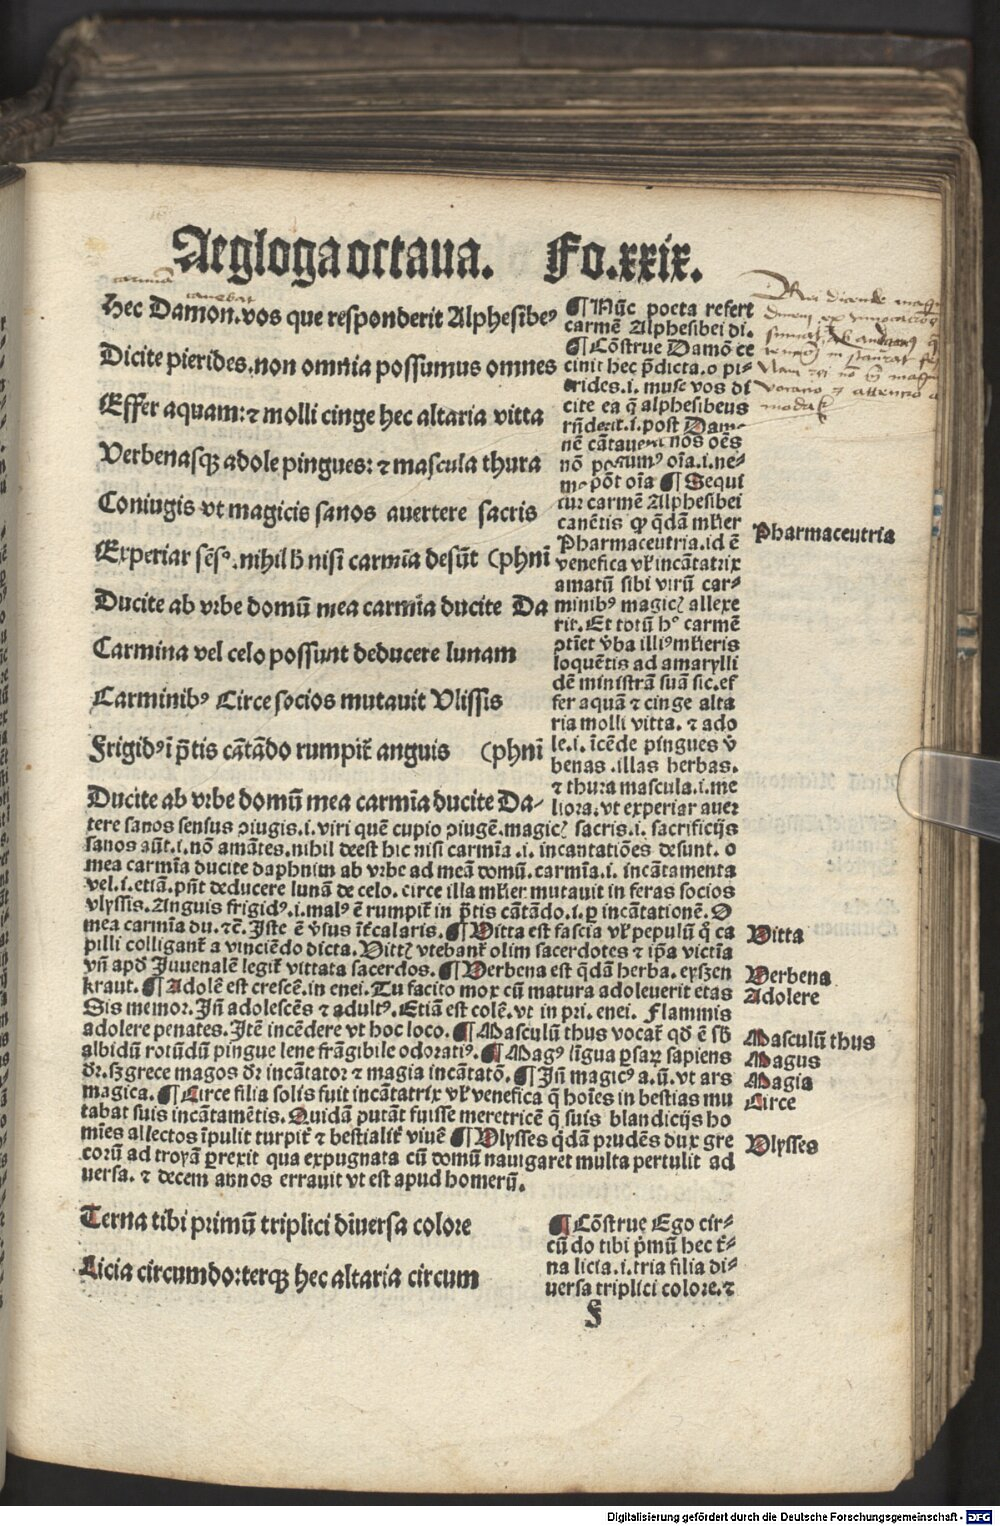 Aegloga octaua. Fo.xxix.
carmina
canebat
Hec Damon.vos que responderit Alphesibeꝰ
Dicite pierides.non omnia possumus omnes
Effer aquam:⁊ molli cinge hec altaria vitta
Verbenasqꝫ adole pingues: ⁊ mascula thura
Coniugis vt magicis sanos auertere sacris
Experiar sẽsꝰ.nihil h̄ nisi carmīa desūt (phnī
Ducite ab vrbe domū mea carmīa ducite Da
Carmina vel celo possunt deducere lunam
Carminibꝰ Circe socios mutauit Vlissis
Frigidꝰ ī p̄tis cātādo rumpit̃ anguis (phnī
Ducite ab vrbe domū mea carmīa ducite Da-
¶ Nūc poeta refert
carmē Alphesibei di.
¶ Cōstrue Damō ce
cinit hec p̄dicta.o pi-
erides.i. muse vos di
cite ea q̄ alphesibeus
rñderit.i.post Damo-
nē cātauerit nos oēs
nō possumꝰ oīa.i.ne-
mo pōt oīa ¶ Sequi
tur carmē Alphesibei
canētis qꝙ q̄dā mlier
Pharmaceutria.id ē
venefica vl̓ incātatrix
amatū sibi virū car-
minibꝰ magicꝭ allexe
rit. Et totū hͦ carmē
ꝯtīet v̓ba illiꝰ mlieris
loquētis ad amarylli
dē ministrā suā sic.ef
fer aquā ⁊ cinge alta
ria molli vitta. ⁊ ado
le.i. īcēde pingues v̓
benas .illas herbas.
⁊ thura mascula.i.me
liora.vt experiar auer
tere sanos sensus ꝯiugis.i.viri quē cupio ꝯiugē.magicꝭ sacris.i. sacrificijs
sanos aūt.i.nō amātes.nihil deest hic nisi carmīa .i. incantatiōes desunt. o
mea carmīa ducite daphnim ab vrbe ad meā domū. carmīa.i. incātamenta
vel.i.etiā.pn̄t deducere lunā de celo. circe illa mlier mutauit in feras socios
vlyssis. Anguis frigidꝰ.i.malꝰ ē rumpit̃ in p̄tis cātādo.i.ꝑ incātationē. O
mea carmīa du. ⁊c. Iste ē v̓sus īt̓calaris. ¶ Vitta est fascia vl̓ pepulū q̄ ca
pilli colligant̃ a vinciēdo dicta. Vittꝭ vtebant̃ olim sacerdotes ⁊ ip̄a victīa
vn̄ apd̓ Juuenalē legit̃ vittata sacerdos. ¶ Verbena est q̄dā herba. eyszen
kraut. ¶ Adolē est crescē.in enei. Tu facito mox cū matura adoleuerit etas
Sis memor. Jn̄ adolescēs ⁊ adultꝰ. Etiā est colē.vt in pri. enei. Flammis
adolere penates. Jtē incēdere vt hoc loco. ¶ Masculū thus vocat̃ qd̓ ē sb̓
albidū rotūdū pingue lene frāgibile odoratiꝰ. ¶ Magꝰ līgua ꝑsaꝝ sapiens
dr̄.sꝫ grece magos dr̄ incātator ⁊ magia incātatō. ¶ Jn̄ magicꝰ a.ū. vt ars
magica. ¶ Circe filia solis fuit incātatrix vl̓ venefica q̄ hoīes in bestias mu
tabat suis incātamētis. Quidā putāt fuisse meretricē q̄ suis blandicijs ho
mīes allectos īpulit turpit̓ ⁊ bestialit̓ viuē ¶ Vlysses q̄dā prudēs dux gre
corū ad troyā ꝑrexit qua expugnata cū domū nauigaret multa pertulit ad
uersa. ⁊ decem annos errauit vt est apud homerū.
Pharmaceutria
Vitta
Verbena
Adolere
Masculū thus
Magus
Magia
Circe
Vlysses
Terna tibi primū triplici diuersa colore
Licia circumdo:terqꝫ hec altaria circum
¶ Cōstrue Ego cir-
cū do tibi p̓mū hec t̓-
na licia.i.tria filia di-
uersa triplici colore.⁊
F
Digitalisierung gefördert durch die Deutsche Forschungsgemeinschaft - DFG